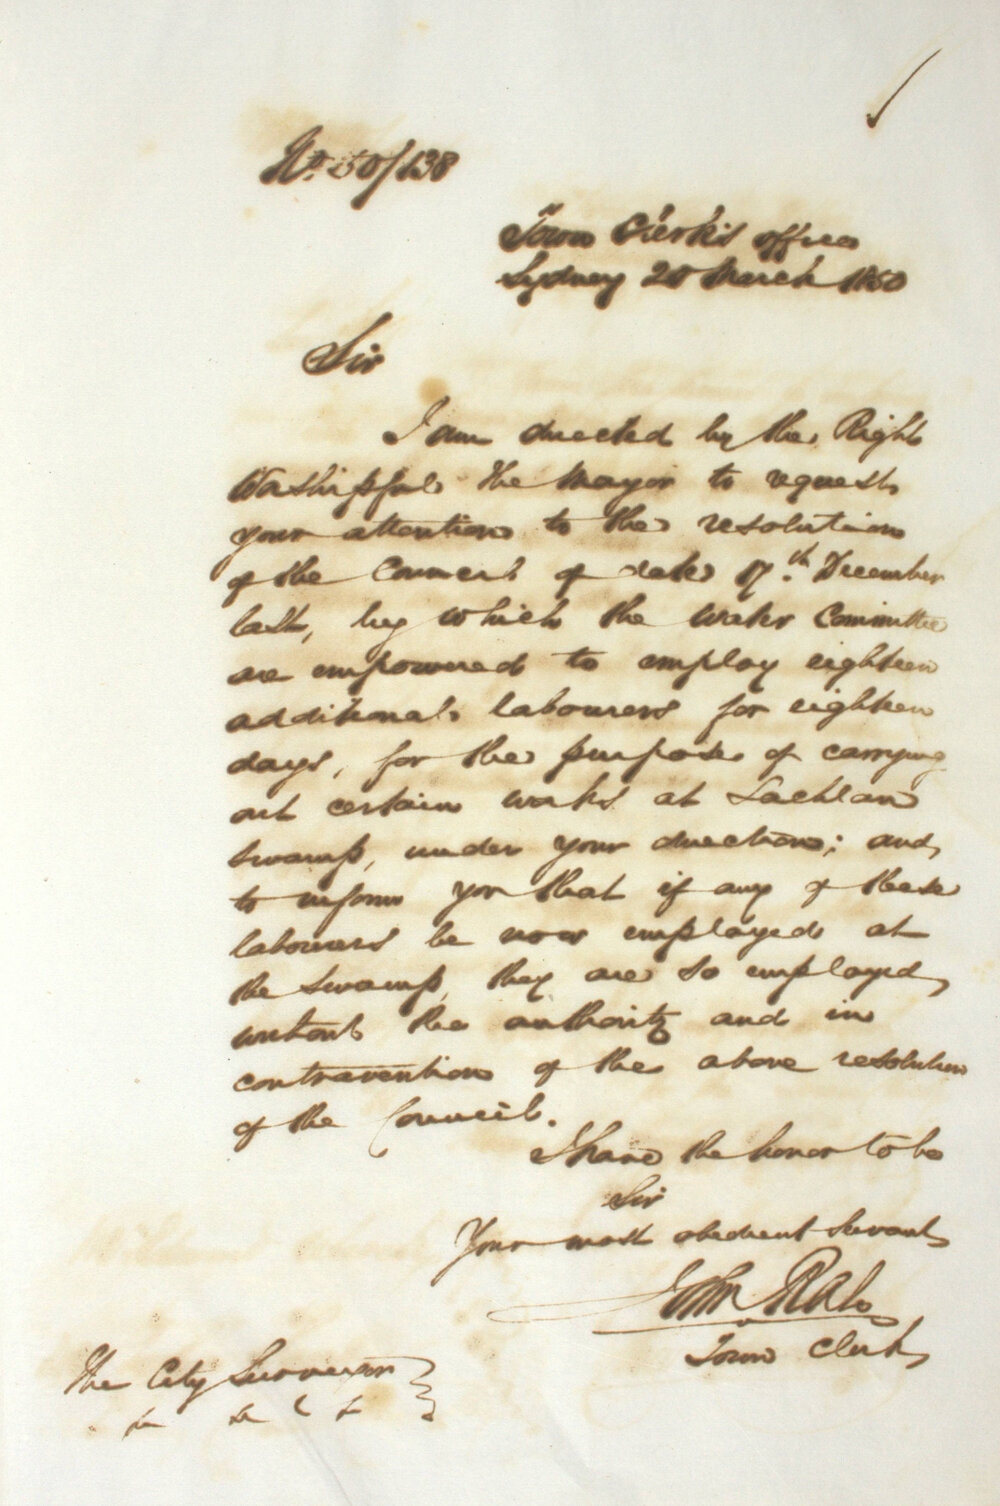 No. 50/138
Town Clerk's Office
Sydney 20 March 1850
Sir
I am directed by the Right
Worshipful the Mayor to request
your attention to the resolution
of the Council of date 17th December
last, by which the Water Committee
are empowered to employ eighteen
additional labourers for eighteen
days, for the purpose of carrying
out certain works at Lachlan
Swamp, under your direction; and
to inform you that if any of these
labourers be now employed at
the Swamp, they are so employed
without the authority and in
contravention of the above resolution
of the Council.
I have the honor to be
Sir
Your most obedient Servant
John Rae
Town Clerk
The City Surveyor